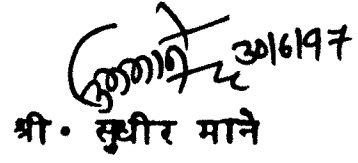 30/6/97
श्री. सुधीर माने